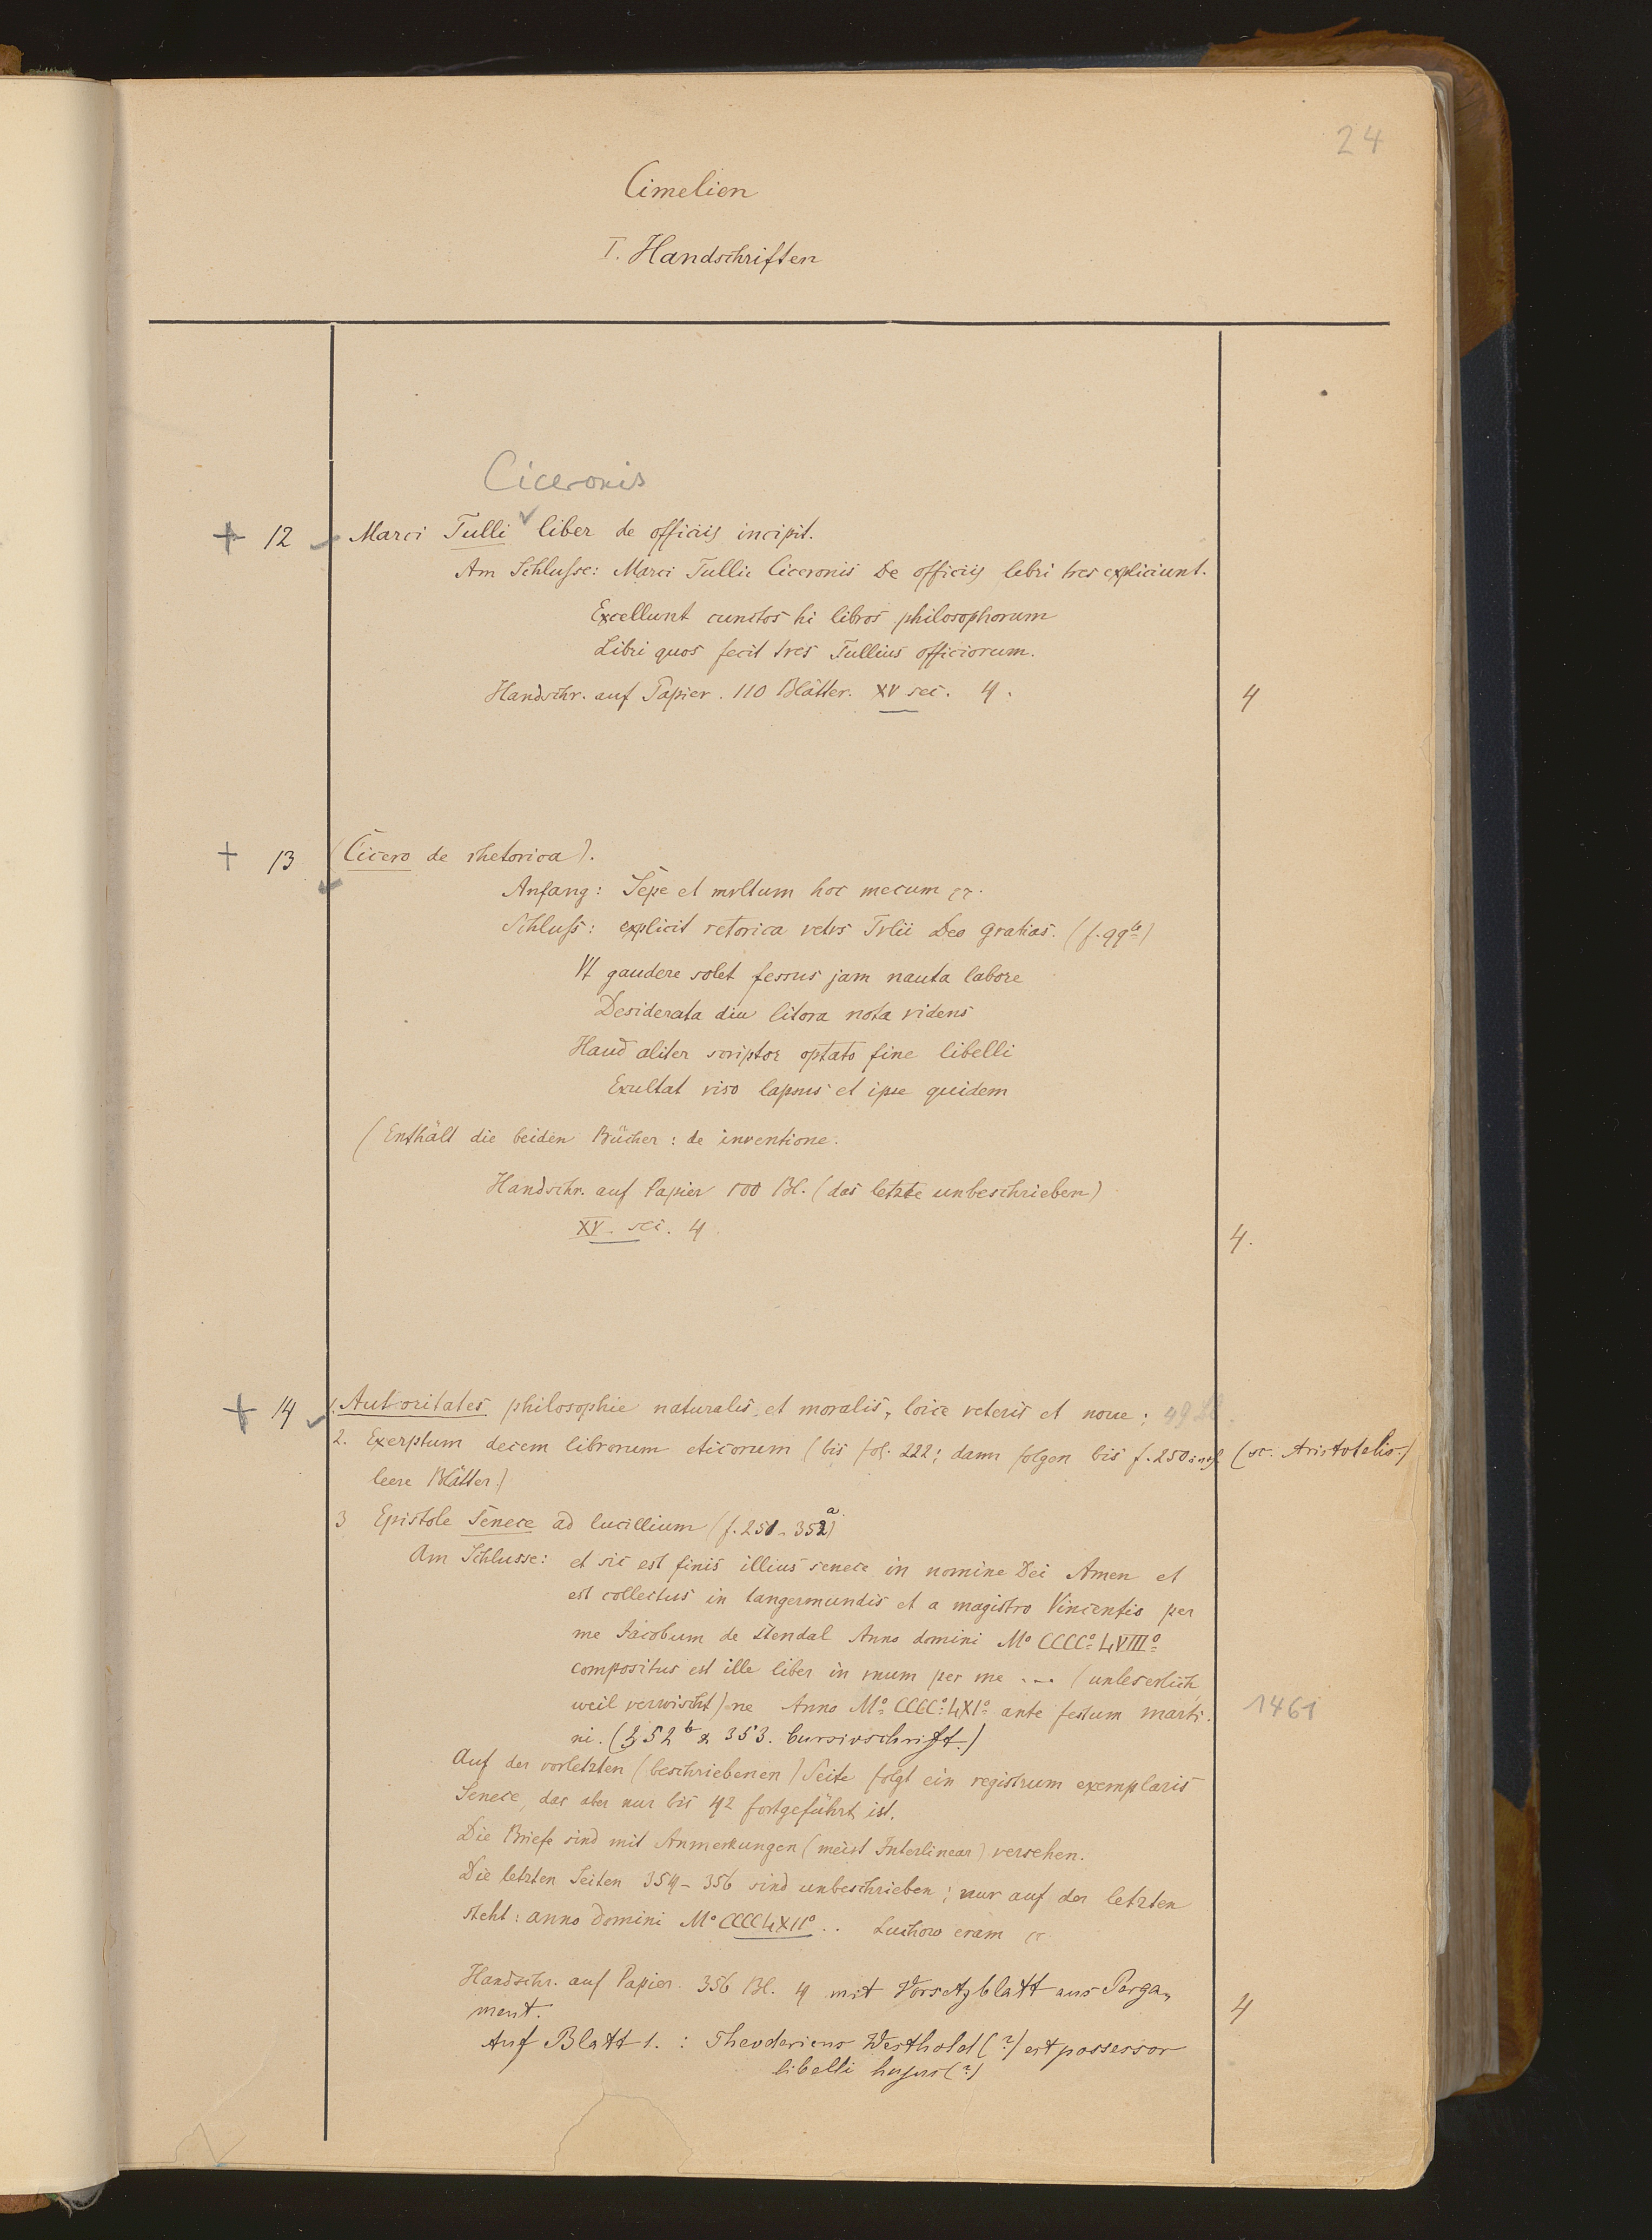 24
Cimelien
I. Handschriften
Ciceronis
+ 12 Marci Tulli ✓ liber de officiis incipit.
Am Schlusse: Marci Tullii Ciceronis De officiis libri tres expliciunt.
Excellunt cunctos hi libros philosophorum
Libri quos fecit tres Tullius officiorum.
Handschr. auf Papier. 110 Blätter. XV sec. 4.
4
+ 13 (Cicero de rhetorica).
Anfang: Sepe et mvltum hoc mecum
Schluss: explicit retorica vetvs Tvlii Deo gratias. (f. 99b)
Vt gaudere solet fessus jam nauta labore
Desiderata diu litora nota videns
Haud aliter scriptor optato fine libelli
Exultat viso lapsus et ipse quidem
(Enthält die beiden Bücher: de inventione.
Handschr. auf Papier 100 Bl. (das letzte unbeschrieben)
XV. sec. 4.
4.
+ 14 1. Autoritates philosophie naturalis et moralis, loice veteris et noue;
2. Exerptum decem librorum eticorum (bis fol. 222; dann folgen bis f. 250 incl. (sc. Aristotelis.)
leere Blätter.)
3 Epistole Senece ad lucillium (f. 251-352a)
Am Schlusse: et sic est finis illius senece in nomine Dei Amen et
est collectus in tangermundis et a magistro Vincentio per
me Jacobum de Stendal Anno domini Mo CCCCo LVIIIo
compositus est ille liber in vnum per me ... (unleserlich,
weil verwischt) ne Anno Mo CCCCo LXIo ante festum marti-
1461
ni. (352b & 353. Cursivschrift.)
Auf der vorletzten (beschriebenen) Seite folgt ein registrum exemplaris
Senece, das aber nur bis 42 fortgeführt ist.
Die Briefe sind mit Anmerkungen (meist Interlinear) versehen.
Die letzten Seiten 354-356 sind unbeschrieben; nur auf der letzten
steht: anno domini Mo CCCCLXIIo .. Luchow eram
Handschr. auf Papier. 356 Bl. 4 mit Vorsetzblatt aus Perga-
ment.
4
Auf Blatt 1.: Theodericus Westhold (?) est possessor
libelli hujus (?)